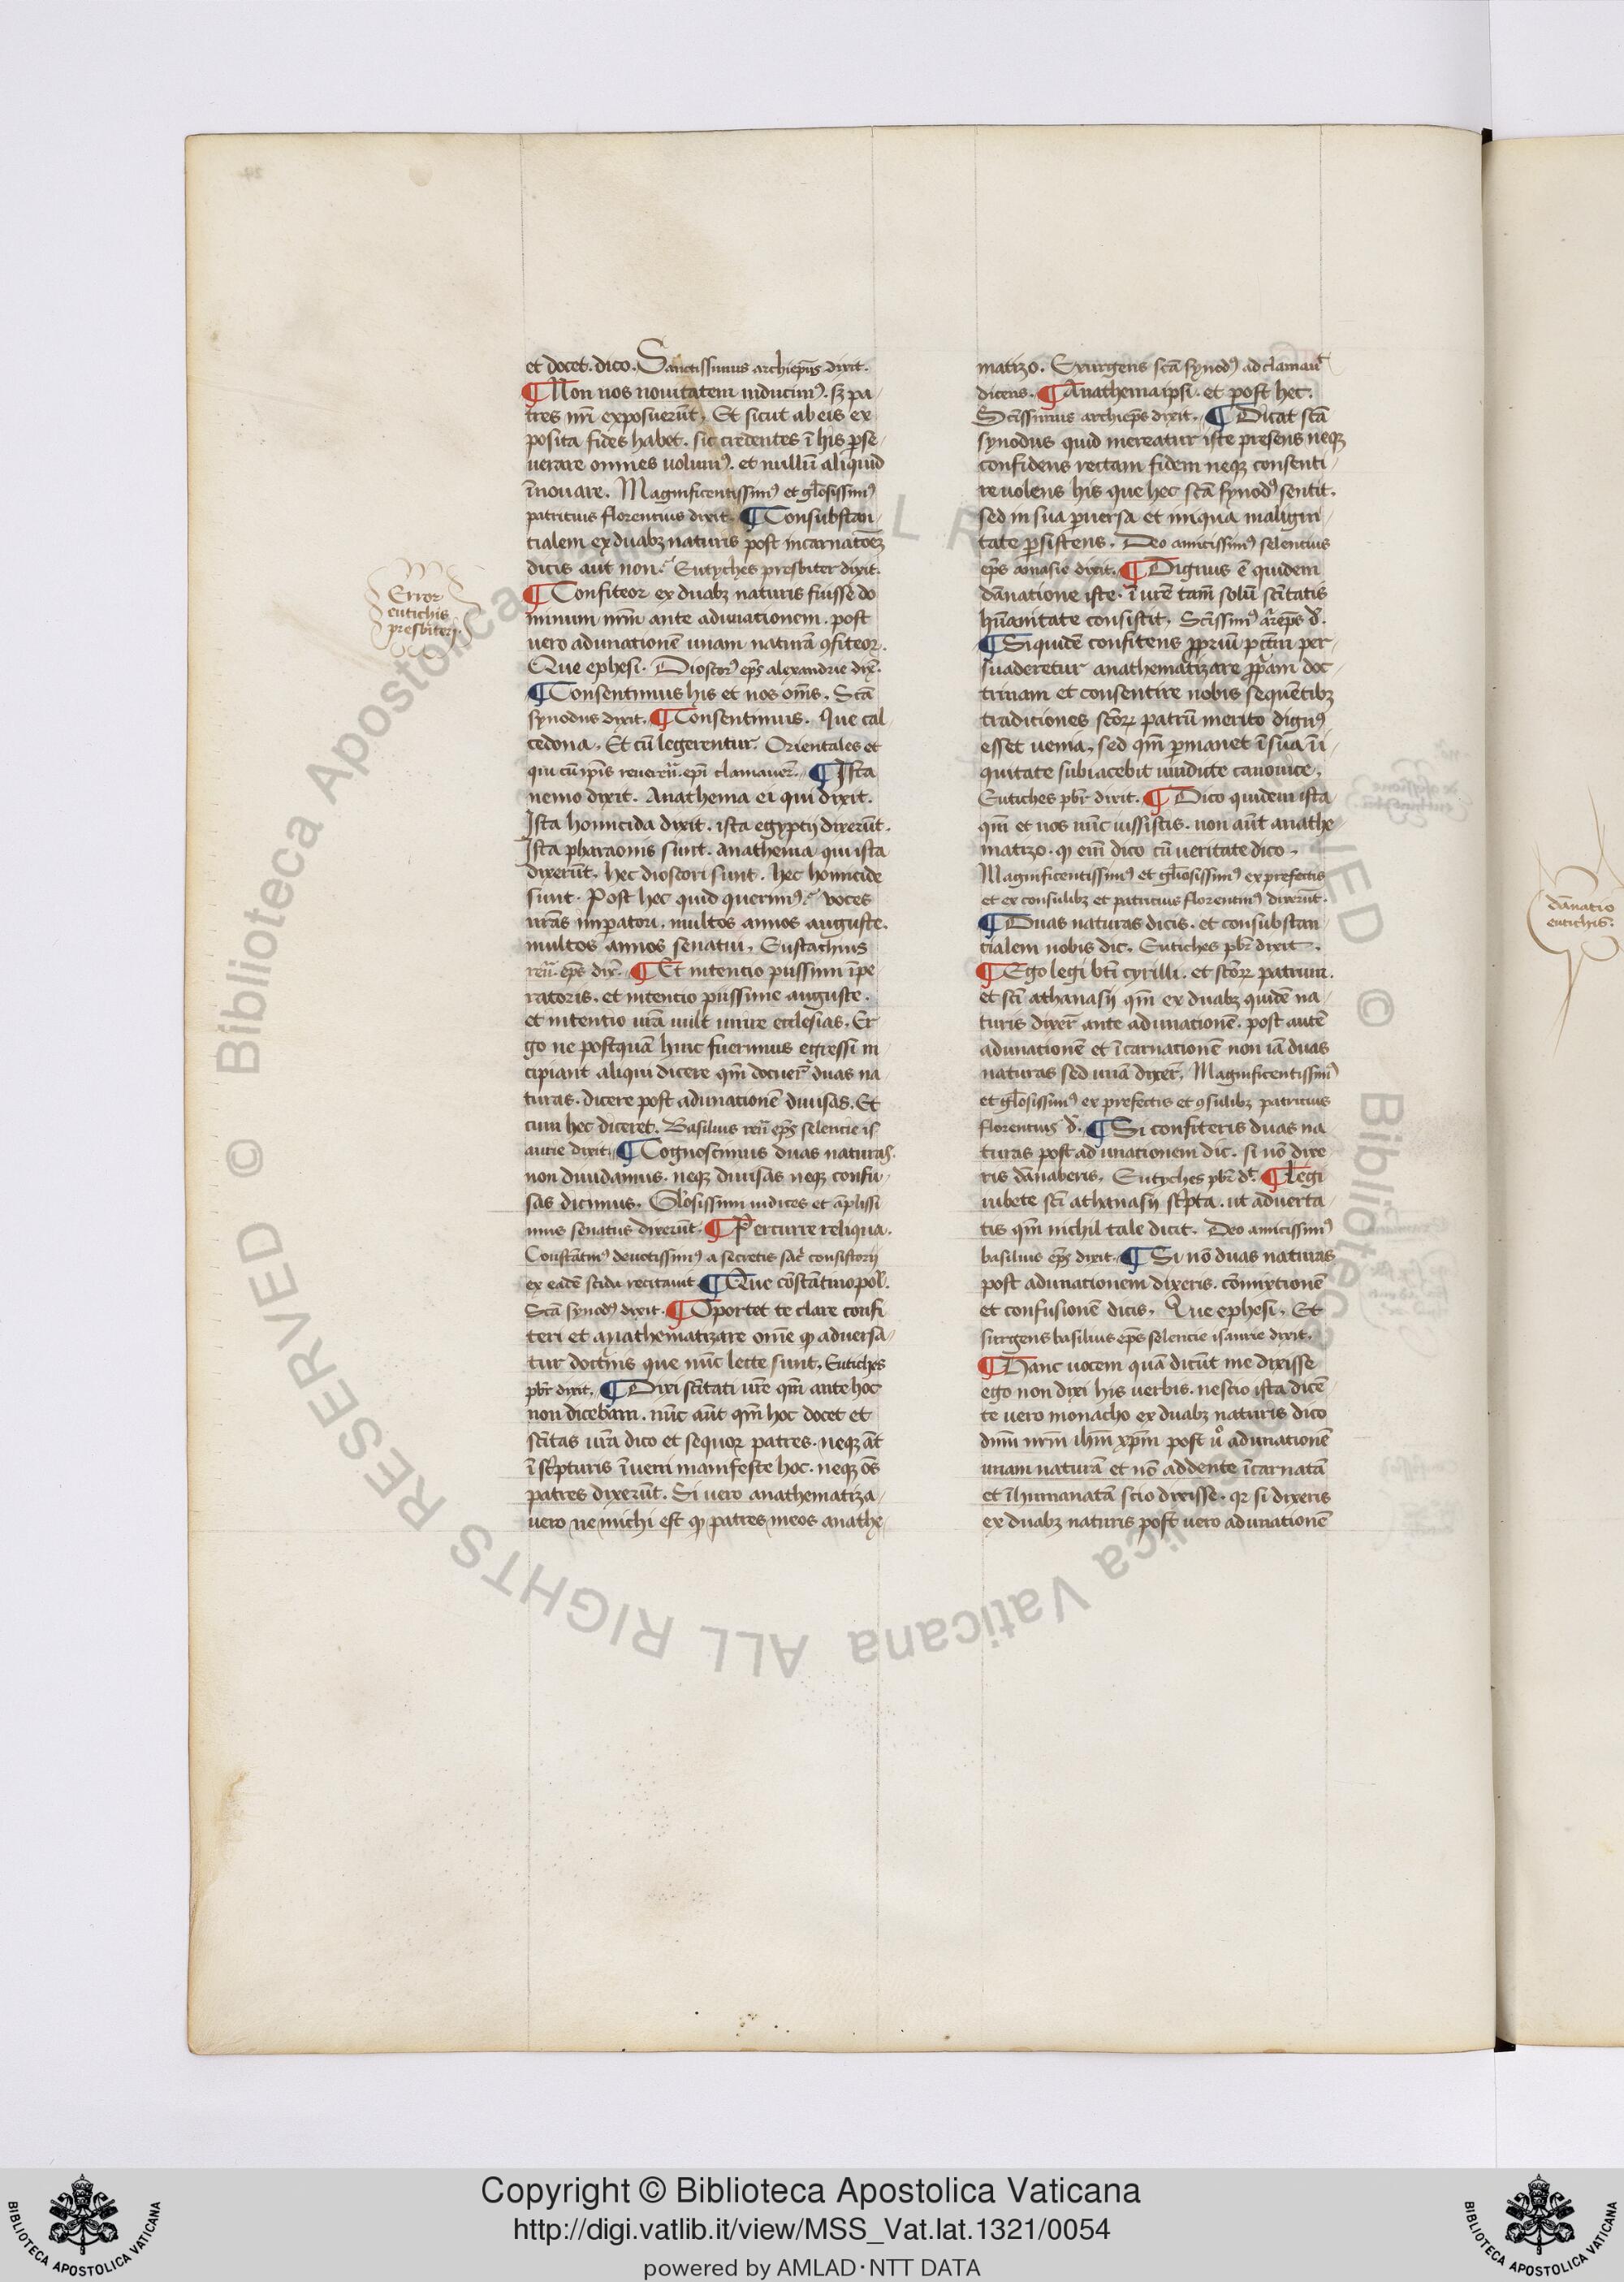 et docet. dico. Sanctissimus archiep̄us dixit.
¶ Non nos nouitatem inducimꝰ. sꝫ pa
tres nr̄i exposuerūt. Et sicut ab eis ex
posita fides habet. sic credentes ī his ꝑse
uerare omnes uolumꝰ. et nullū aliquid
īnouare. Magnificentissimꝰ et gl̄osissimꝰ
patritius florentius dixit. ¶ Consubstan
tialem ex duabꝫ naturis post incarnatōeꝫ
dicis aut non. Eutyches presbiter dixit.
¶ Confiteor ex duabꝫ naturis fuisse do
minum nr̄m ante adunationem. post
uero adunationē unam naturā ꝯfiteor.
Que ephesi. Dioscorꝰ ep̄s alexandrie dix̄.
¶ Consentimus his et nos om̄s. Scā
synodus dixit. ¶ Consentimus. Que cal
cedona. Et cū legerentur. Orientales et
qui cū ip̄is reuer̄n. ep̄i clamauer̄. ¶ Ista
nemo dixit. Anathema ei qui dixit.
Ista homicida dixit. ista egyptij dixerūt.
Ista pharaonis sunt. anathema qui ista
dixerūt. hec dioscori sunt. hec homicide
sunt. Post hec quid querimꝰ. uoces
ur̄as imꝑatori. multos annos auguste.
multos annos senatui. Eustachius
reū. ep̄s dix̄. ¶ Et intencio pijssimi īpe
ratoris. et intencio pijssime auguste.
et intentio ur̄a uult unire ecclesias. Er
go ne postquā hinc fuerimus egressi in
cipiant aliqui dicere qm̄ docuer̄ duas na
turas. dicere post adunationē diuisas. Et
cum hec diceret. Basilius reū ep̄s selencie is
aurie dixit. ¶ Cognoscimus duas naturas.
non diuidamus. neqꝫ diuisas neqꝫ confu
sas dicimus. Gl̄osissimi iudices et āplissi
mus senatus dixerūt. ¶ Percurre reliqua.
Constātinꝰ deuotissimꝰ a secretis sac̄ consistorij
ex eadē scida recitauit ¶ Que cōstātinopol̄.
Scā synodꝰ dixit. ¶ Oportet te clare confi
teri et anathematizare om̄e qꝫ aduersa
tur doctrinis que nūc lecte sunt. Eutiches
pb̄r dixit. ¶ Dixi sc̄itati ur̄e qm̄ ante hoc
non dicebam. nūc aūt qm̄ hoc docet et
sc̄itas ur̄a dico et sequor patres. neqꝫ āt
ī sc̄pturis īueni manifeste hoc. neqꝫ oēs
patres dixerūt. Si uero anathematiza
uero ue michi est qꝫ patres meos anathe
Error
eutichis
presbiteri.
matizo. Exurgens scā synodꝰ adclamaūt
dicens. ¶ Anathema ipsi. et post hec.
Sc̄issimus archiep̄s dixit. ¶ Dicat scā
synodus quid mereatur iste presens neqꝫ
confidens rectam fidem neqꝫ consenti
re uolens his que hec scā synodꝰ sentit.
sed in sua ꝑuersa et iniqua maligni
tate ꝑsistens. Deo amicissimꝰ selencius
ep̄s amasie dixit. ¶ Dignus ē quidem
dānatione iste. ī ur̄e tam̄ solū sc̄itatis
hūanitate consistit. Sc̄issimꝰ ar̄ep̄s d̄.
¶ Siquidē confitens ꝓpriū pctm̄ per
suaderetur anathematizare ꝓpriam doc
trinam et consentire nobis sequētibꝫ
traditiones scōꝝ patrū merito dignꝰ
esset uenia. sed qm̄ ꝑmanet ī sua īi
quitate subiacebit uindicte canonice.
Eutiches pb̄r dixit. ¶ Dico quidem ista
qm̄ et nos nūc iussistis. non aūt anathe
matizo. qꝫ eī dico cū ueritate dico.
Magnificentissimꝰ et gl̄iosissimꝰ ex prefectis
et ex consulibꝫ et patritius florentinꝰ dixerūt.
¶ Duas naturas dicis. et consubstan
tialem nobis dic. Eutiches pb̄r dixit.
¶ Ego legi bt̄i cyrilli. et scōꝝ patrum.
et sc̄i athanasij qm̄ ex duabꝫ quidē na
turis dixer̄ ante adunationē. post autē
adunationē et īcarnacionē non iā duas
naturas sed unā dixer̄. Magnificentissimꝰ
et gl̄osissimꝰ ex prefectis et ꝯsulibꝫ patritius
florentius d̄. ¶ Si confiteris duas na
turas post adunationem dic. si nō dixe
ris dānaberis. Eutyches pb̄r d̄t. ¶ Legi
iubete sc̄i athanasij sc̄pta. ut aduerta
tis qm̄ nichil tale dicit. Deo amicissimꝰ
basilius ep̄s dixit. ¶ Si nō duas naturas
post adunationem dixeris. cōmixtionē
et confusionē dicis. Que ephesi. Et
surgens basilius ep̄s selencie isaurie dixit.
¶ Hanc uocem quā dicūt me dixisse
ego non dixi his uerbis. nescio ista dicē
te uero monacho ex duabꝫ naturis dico
dnm̄ nr̄m ihm̄ xpm̄ post uͦ adunationē
unam naturā et nō addente īcarnatā
et īhumanatā scio dixisse. qr si dixeris
ex duabꝫ naturis post uero adunationē
dānatio
eutichis.
© Biblioteca Apostolica Vaticana ALL RIGHTS RESERVED
Copyright © Biblioteca Apostolica Vaticana
http://digi.vatlib.it/view/MSS_Vat.lat.1321/0054
powered by AMLAD·NTT DATA
BIBLIOTECA APOSTOLICA VATICANA
BIBLIOTECA APOSTOLICA VATICANA